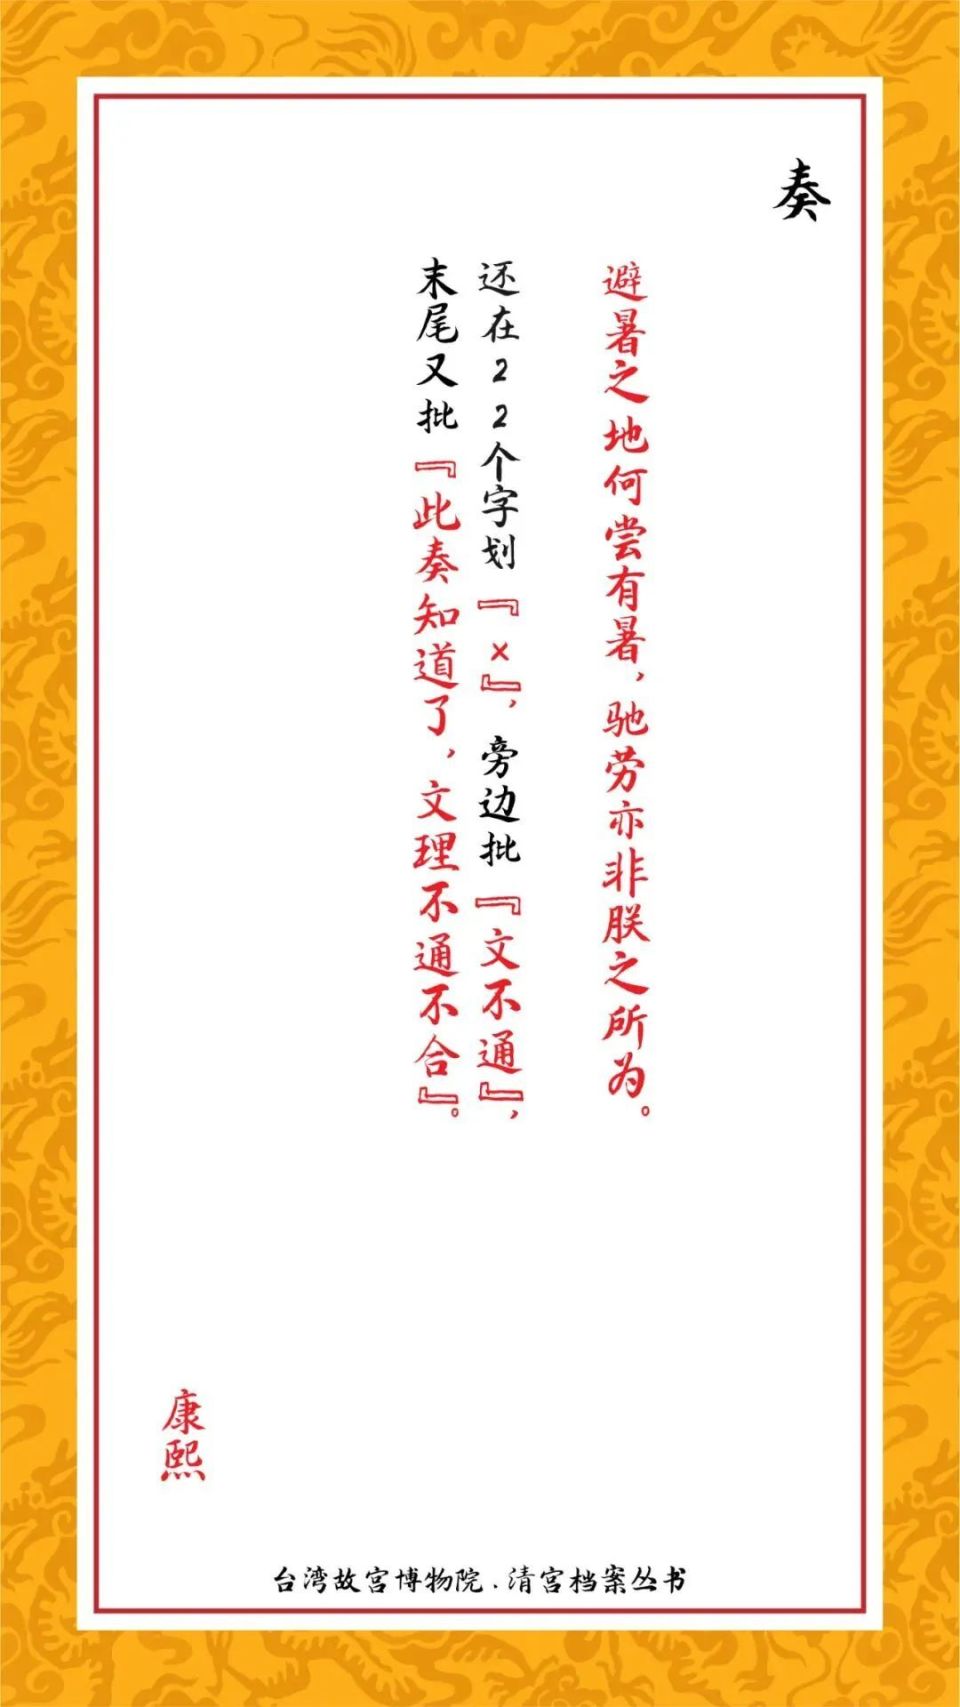 奏
避暑之地何尝有暑，驰劳亦非朕之所为。
还在22个字划『×』，旁边批『文不通』，
末尾又批『此奏知道了，文理不通不合』。
康熙
台湾故宫博物院.清宫档案丛书